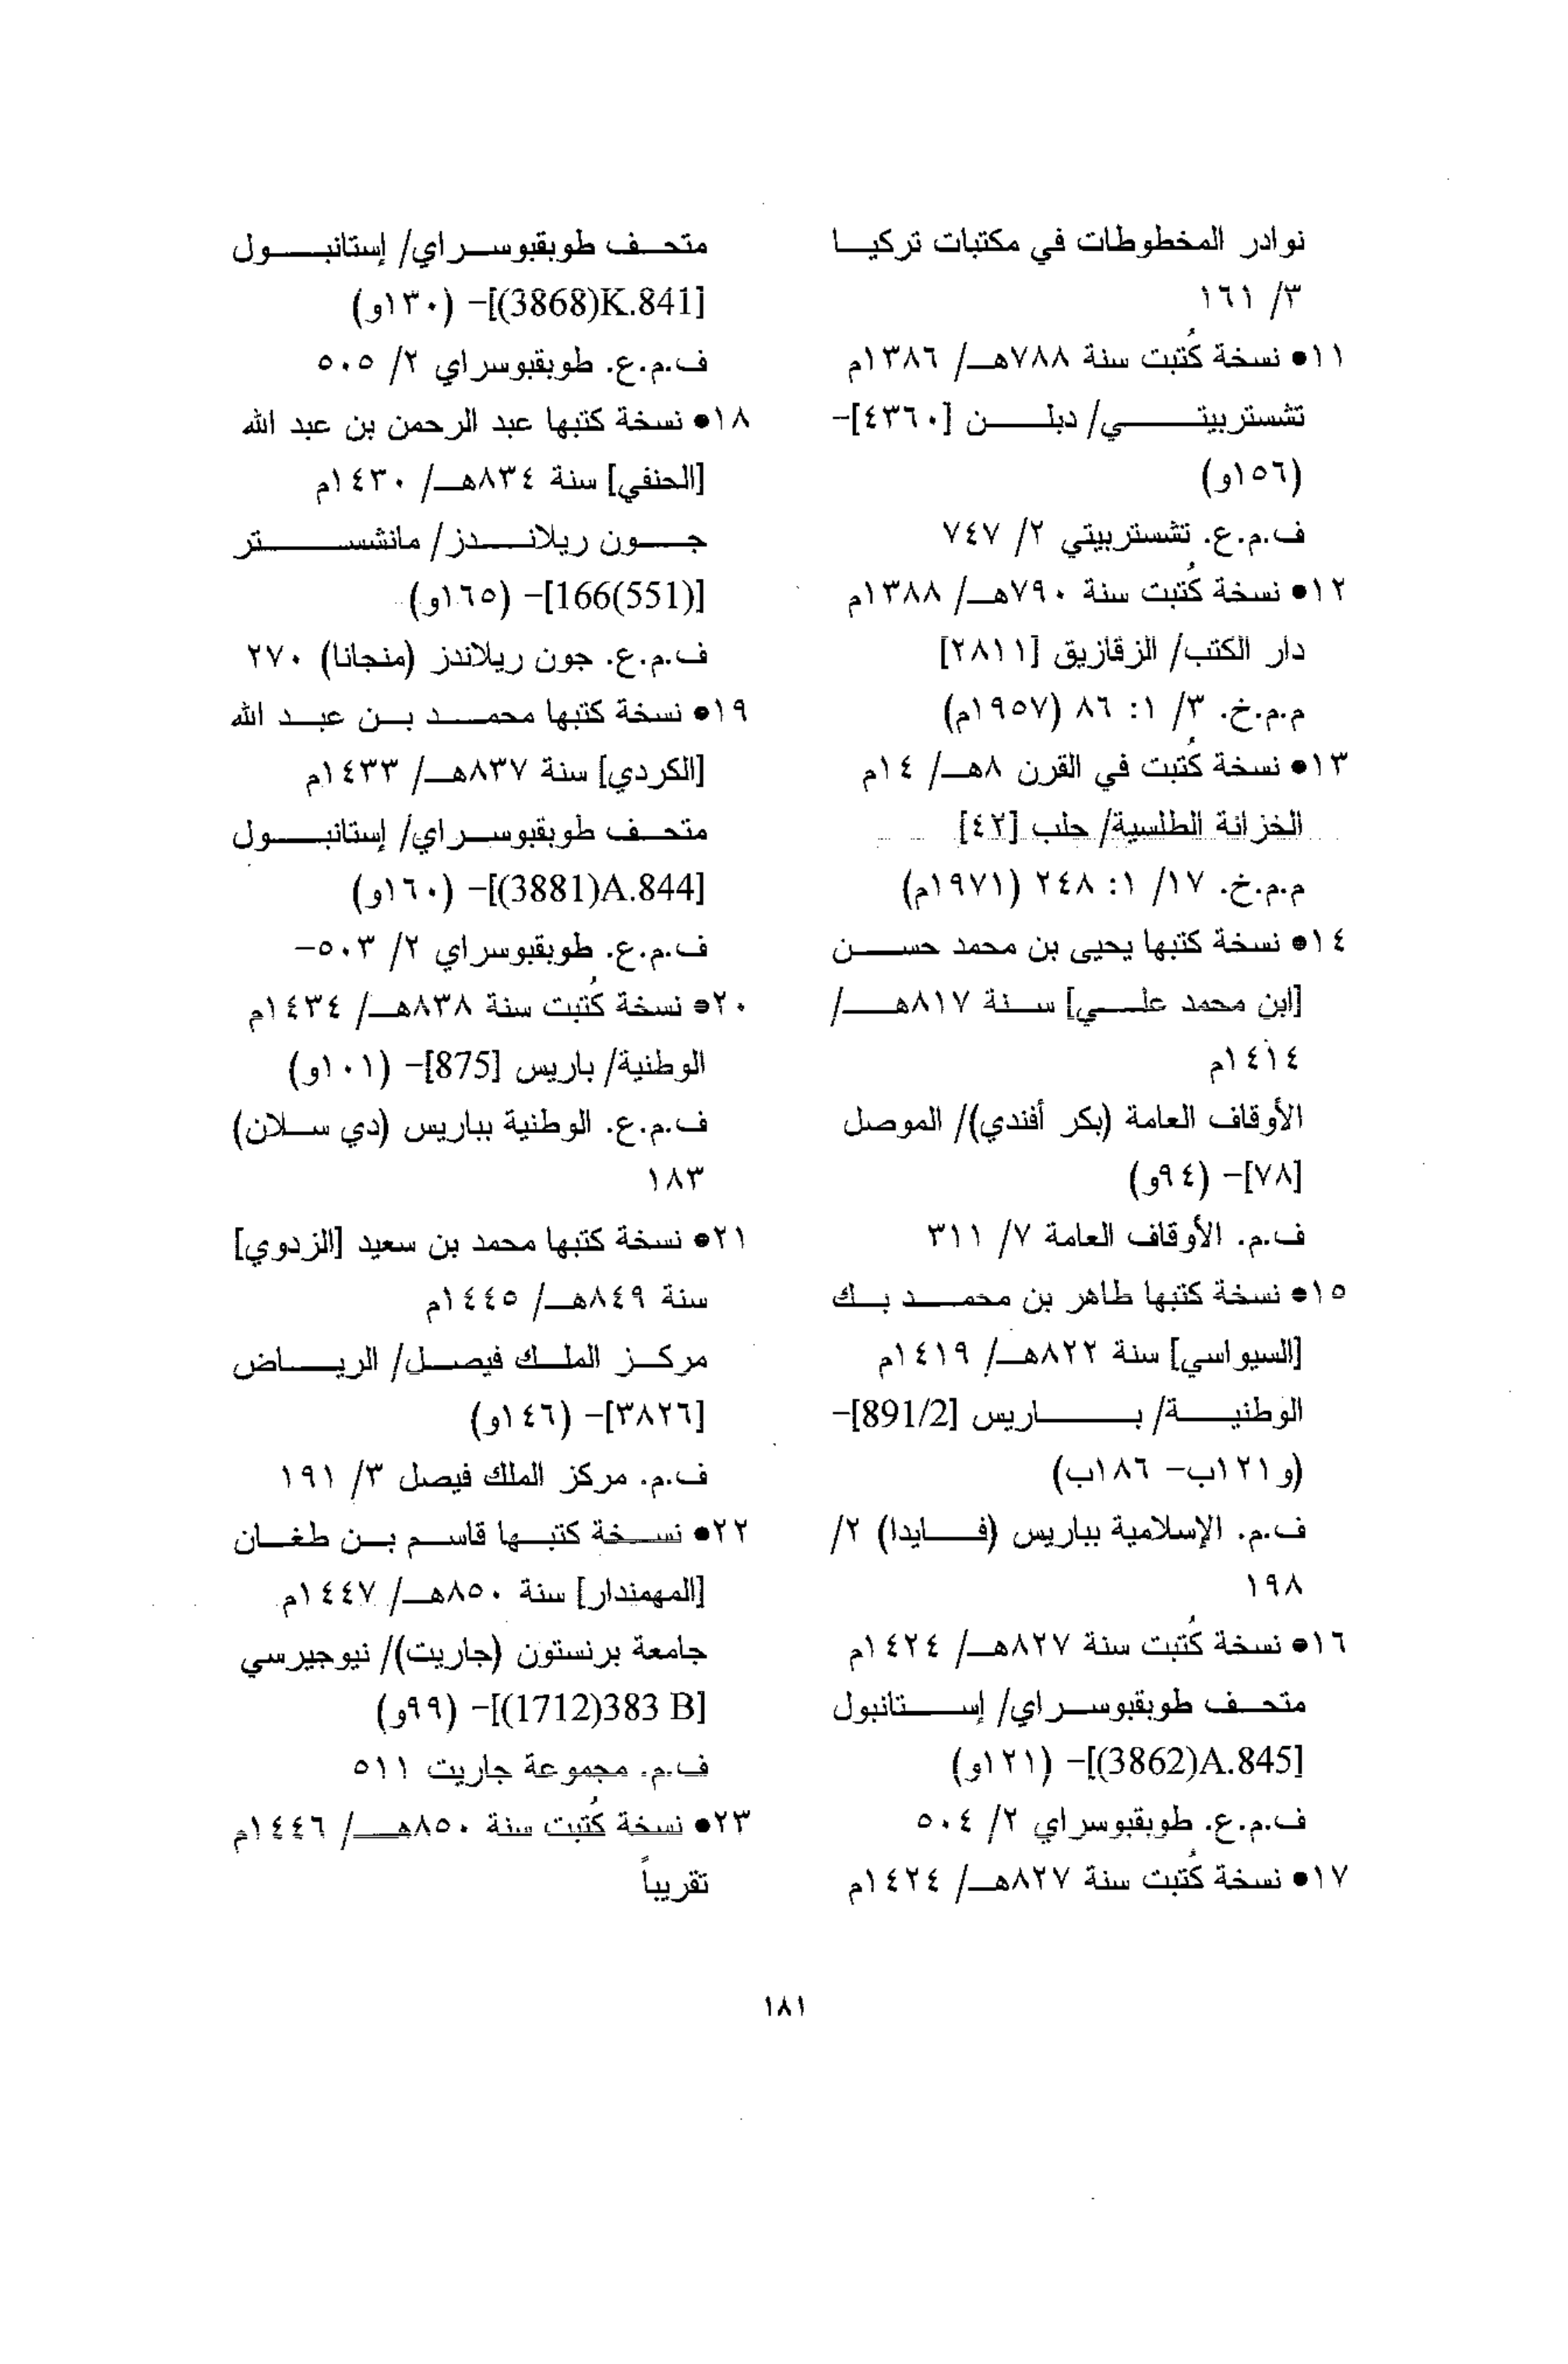 نوادر المخطوطات في مكتبات تركيا
٣/ ١٦١
١١• نسخة كُتبت سنة ٧٨٨هـ/ ١٣٨٦م
تشستربيتي/ دبلن [٤٣٦٠]-
(١٥٦و)
ف.م.ع. تشستربيتي ٢/ ٧٤٧
١٢• نسخة كُتبت سنة ٧٩٠هـ/ ١٣٨٨م
دار الكتب/ الزقازيق [٢٨١١]
م.م.خ. ٣/ ١: ٨٦ (١٩٥٧م)
١٣• نسخة كُتبت في القرن ٨هـ/ ١٤م
الخزانة الطلسية/ حلب [٤٢]
م.م.خ. ١٧/ ١: ٢٤٨ (١٩٧١م)
١٤• نسخة كتبها يحيى بن محمد حسن
[ابن محمد علي] سنة ٨١٧هـ/
١٤١٤م
الأوقاف العامة (بكر أفندي)/ الموصل
[٧٨]- (٩٤و)
ف.م. الأوقاف العامة ٧/ ٣١١
١٥• نسخة كتبها طاهر بن محمد بك
[السيواسي] سنة ٨٢٢هـ/ ١٤١٩م
الوطنية/ باريس [891/2]-
(و١٢١ب- ١٨٦ب)
ف.م. الإسلامية بباريس (فايدا) ٢/
١٩٨
١٦• نسخة كُتبت سنة ٨٢٧هـ/ ١٤٢٤م
متحف طوبقبوسراي/ إستانبول
[(3862)A.845]- (١٢١و)
ف.م.ع. طوبقبوسراي ٢/ ٥٠٤
١٧• نسخة كُتبت سنة ٨٢٧هـ/ ١٤٢٤م
متحف طوبقبوسراي/ إستانبول
[(3868)K.841]- (١٣٠و)
ف.م.ع. طوبقبوسراي ٢/ ٥٠٥
١٨• نسخة كتبها عبد الرحمن بن عبد الله
[الحنفي] سنة ٨٣٤هـ/ ١٤٣٠م
جون ريلاندز/ مانشستر
[166(551)]- (١٦٥و)
ف.م.ع. جون ريلاندز (منجانا) ٢٧٠
١٩• نسخة كتبها محمد بن عبد الله
[الكردي] سنة ٨٣٧هـ/ ١٤٣٣م
متحف طوبقبوسراي/ إستانبول
[(3881)A.844]- (١٦٠و)
ف.م.ع. طوبقبوسراي ٢/ ٥٠٣-
٢٠• نسخة كُتبت سنة ٨٣٨هـ/ ١٤٣٤م
الوطنية/ باريس [875]- (١٠١و)
ف.م.ع. الوطنية بباريس (دي سلان)
١٨٣
٢١• نسخة كتبها محمد بن سعيد [الزدوي]
سنة ٨٤٩هـ/ ١٤٤٥م
مركز الملك فيصل/ الرياض
[٣٨٢٦]- (١٤٦و)
ف.م. مركز الملك فيصل ٣/ ١٩١
٢٢• نسخة كتبها قاسم بن طغان
[المهمندار] سنة ٨٥٠هـ/ ١٤٤٧م
جامعة برنستون (جاريت)/ نيوجيرسي
[(1712)383 B]- (٩٩و)
ف.م. مجموعة جاريت ٥١١
٢٣• نسخة كُتبت سنة ٨٥٠هـ/ ١٤٤٦م
تقريباً
١٨١